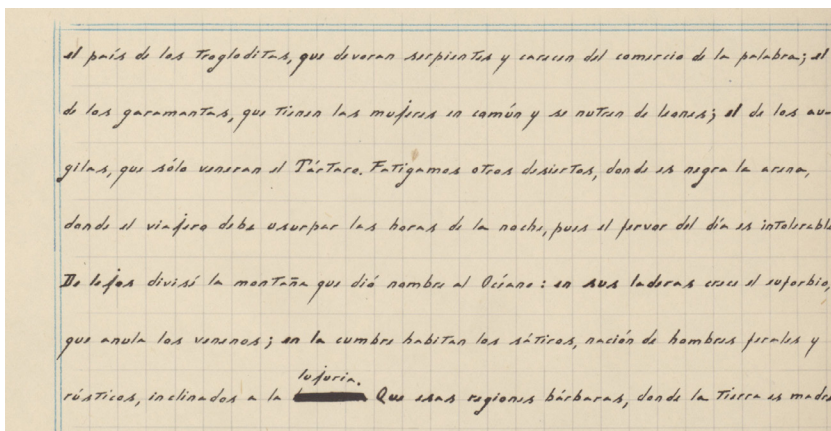 el país de los trogloditas, que devoran serpientes y carecen del comercio de la palabra; el
de los garamantas, que tienen las mujeres en común y se nutren de leones; el de los au-
gilas, que sólo veneran el Tártaro. Fatigamos otros desiertos, donde es negra la arena,
donde el viajero debe usurpar las horas de la noche, pues el fervor del día es intolerable
De lejos divisé la montaña que dió nombre al Océano: en sus laderas crece el euforbio,
que anula los venenos; en la cumbre habitan los sátiros, nación de hombres ferales y
lujuria.
rústicos, inclinados a la Que esas regiones bárbaras, donde la Tierra es madre